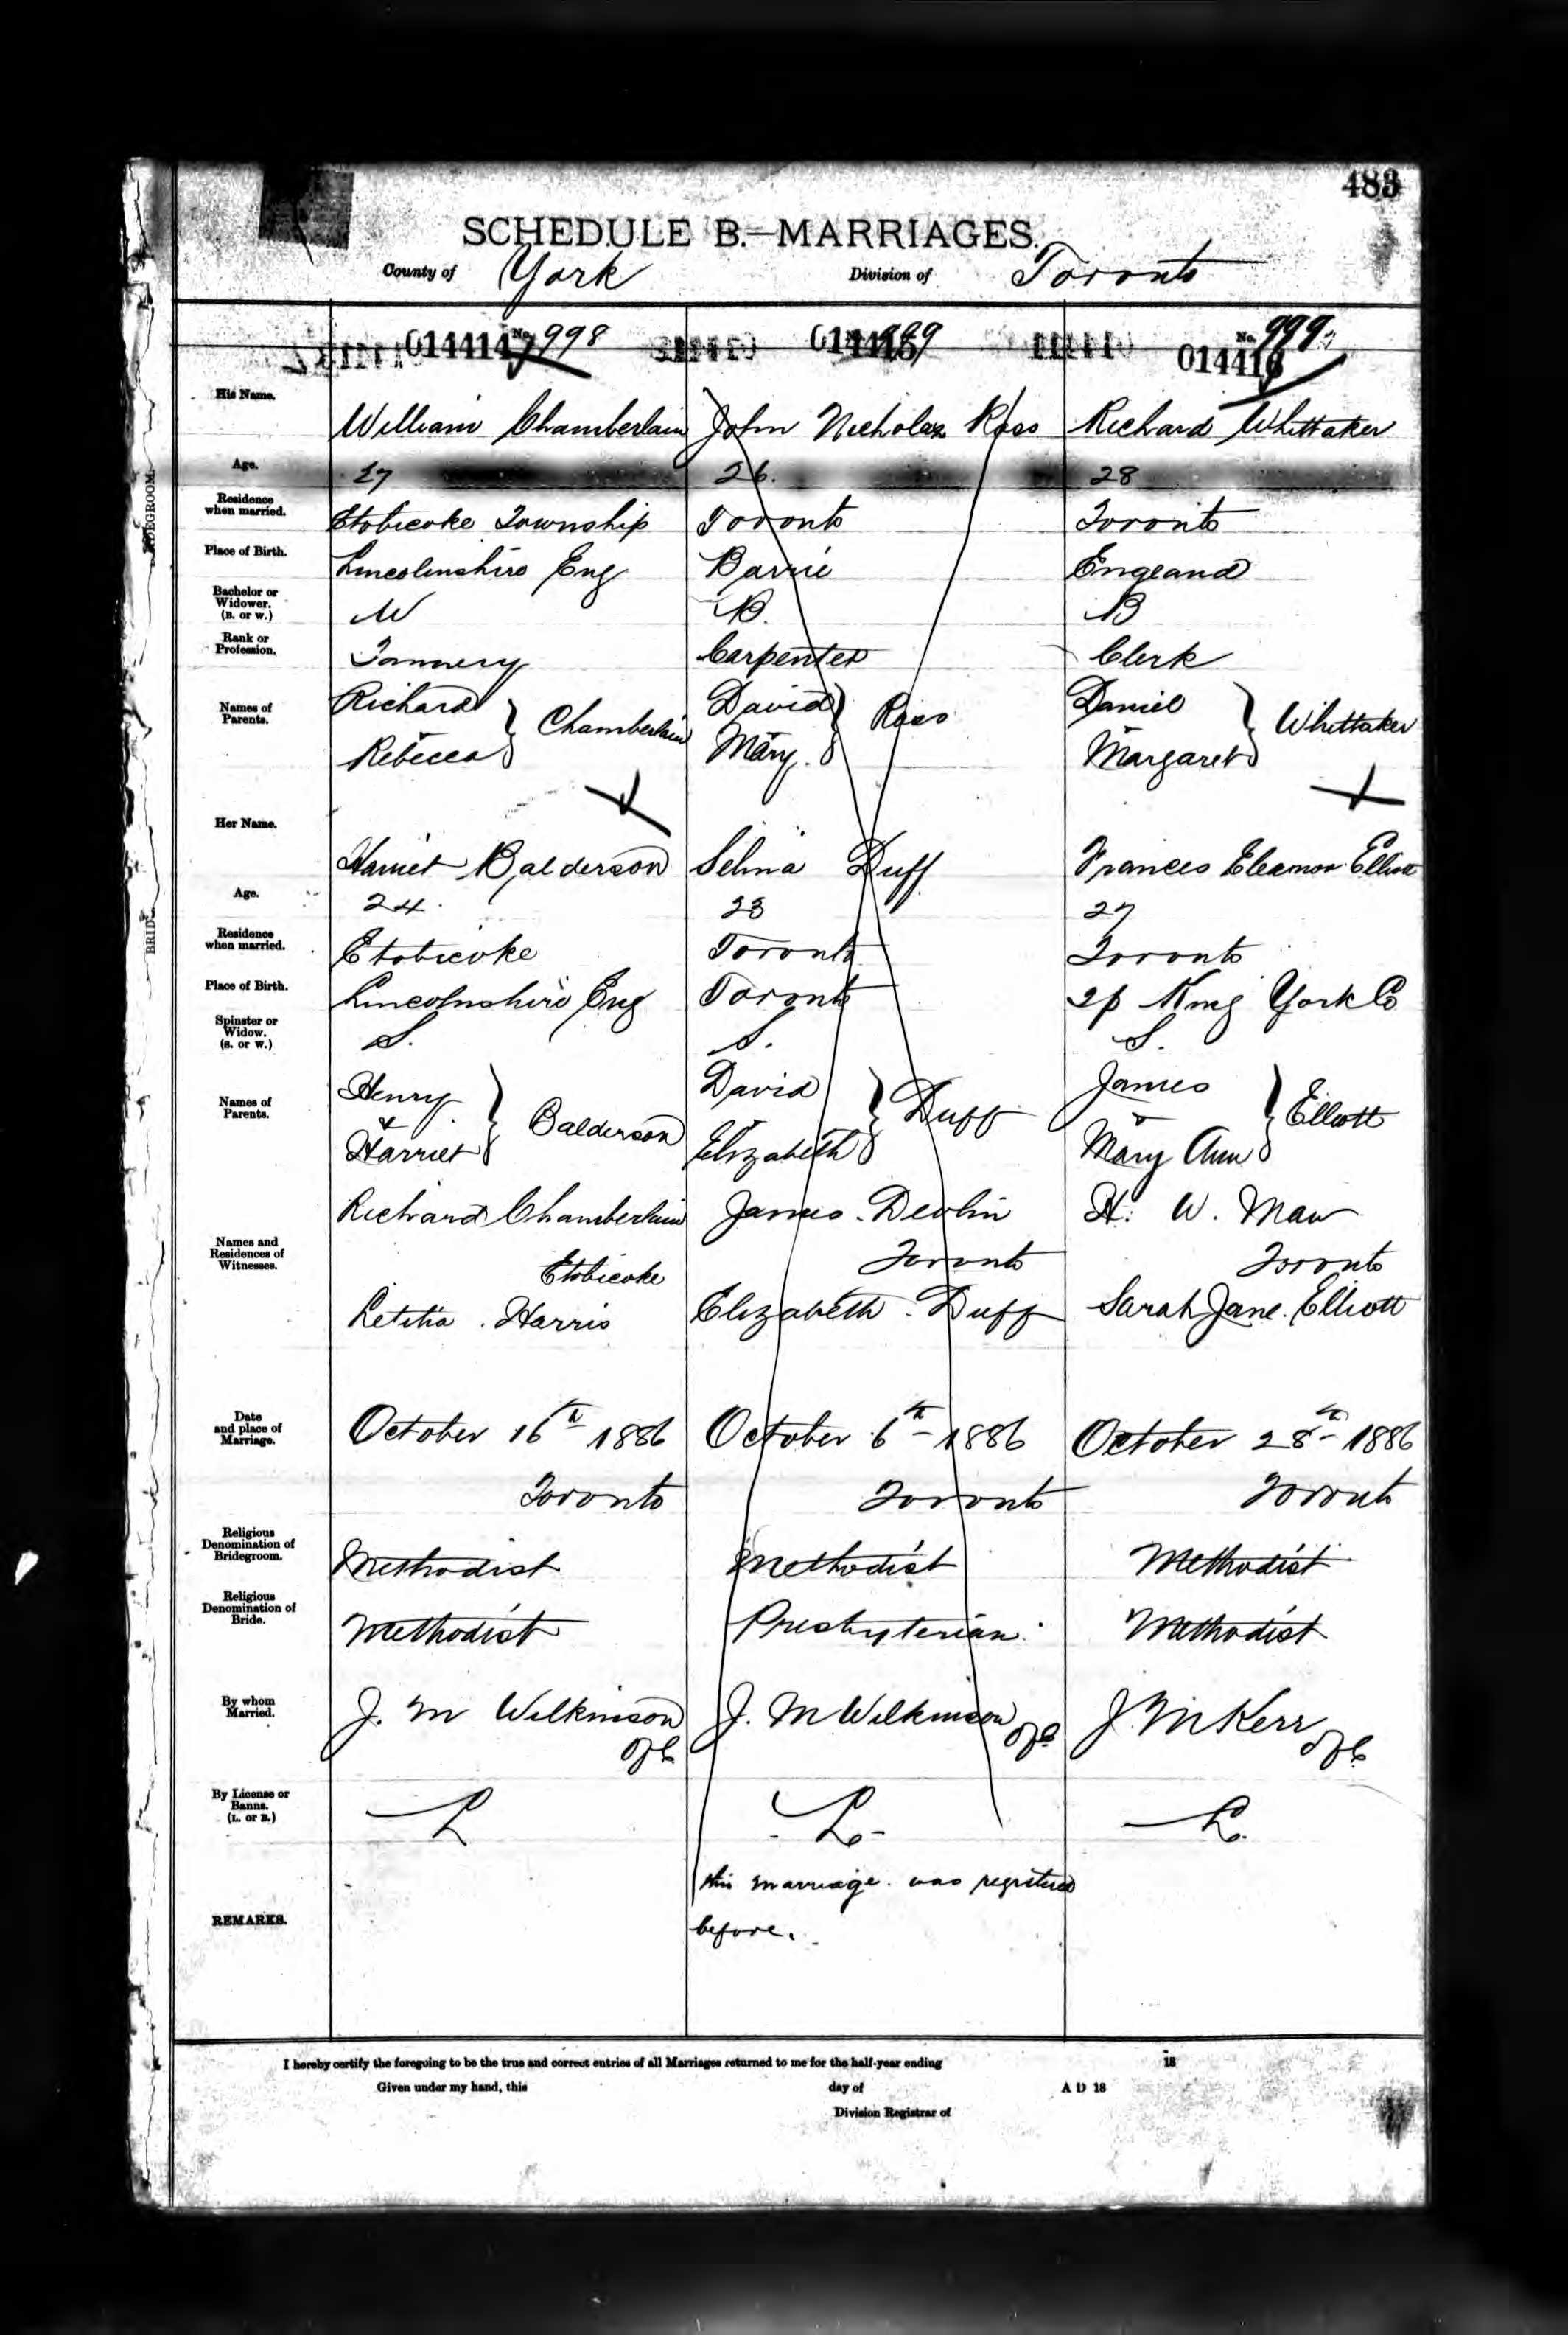 483
SCHEDULE B.—MARRIAGES.
County of York Division of Toronto
014414 No. 998 999 No. 999
014416
His Name. William Chamberlain John Nicholas Ross Richard Whittaker
Age. 27 26. 28
Residence when married. Etobicoke Township Toronto Toronto
Place of Birth. Lincolnshire Eng Barrie England
Bachelor or Widower. (B. or W.) W B. B
Rank or Profession. Tannery Carpenter Clerk
Names of Parents. Richard Rebecca } Chamberlain David & Mary. } Ross Daniel & Margaret } Whittaker
BRIDEGROOM.
Her Name. Harriet Balderson Selina Duff Frances Eleanor Elliott
Age. 24. 23 27
Residence when married. Etobicoke Toronto Toronto
Place of Birth. Lincolnshire Eng Toronto Tp King York Co
Spinster or Widow. (S. or W.) S. S. S.
Names of Parents. Henry & Harriet } Balderson David & Elizabeth } Duff James & Mary Ann } Elliott
BRIDE.
Names and Residences of Witnesses. Richard Chamberlain James Devlin H. W. Maw
Etobicoke Toronto Toronto
Letitia Harris Elizabeth Duff Sarah Jane Elliott
Date and place of Marriage. October 16th 1886 October 6th 1886 October 28th 1886
Toronto Toronto Toronto
Religious Denomination of Bridegroom. Methodist Methodist Methodist
Religious Denomination of Bride. Methodist Presbyterian Methodist
By whom Married. J. M Wilkinson J. M Wilkinson J. M Kerr
By License or Banns. (L. or B.) L L L.
REMARKS. this marriage was registered
before.
I hereby certify the foregoing to be the true and correct entries of all Marriages returned to me for the half-year ending 18
Given under my hand, this day of A D 18
Division Registrar of